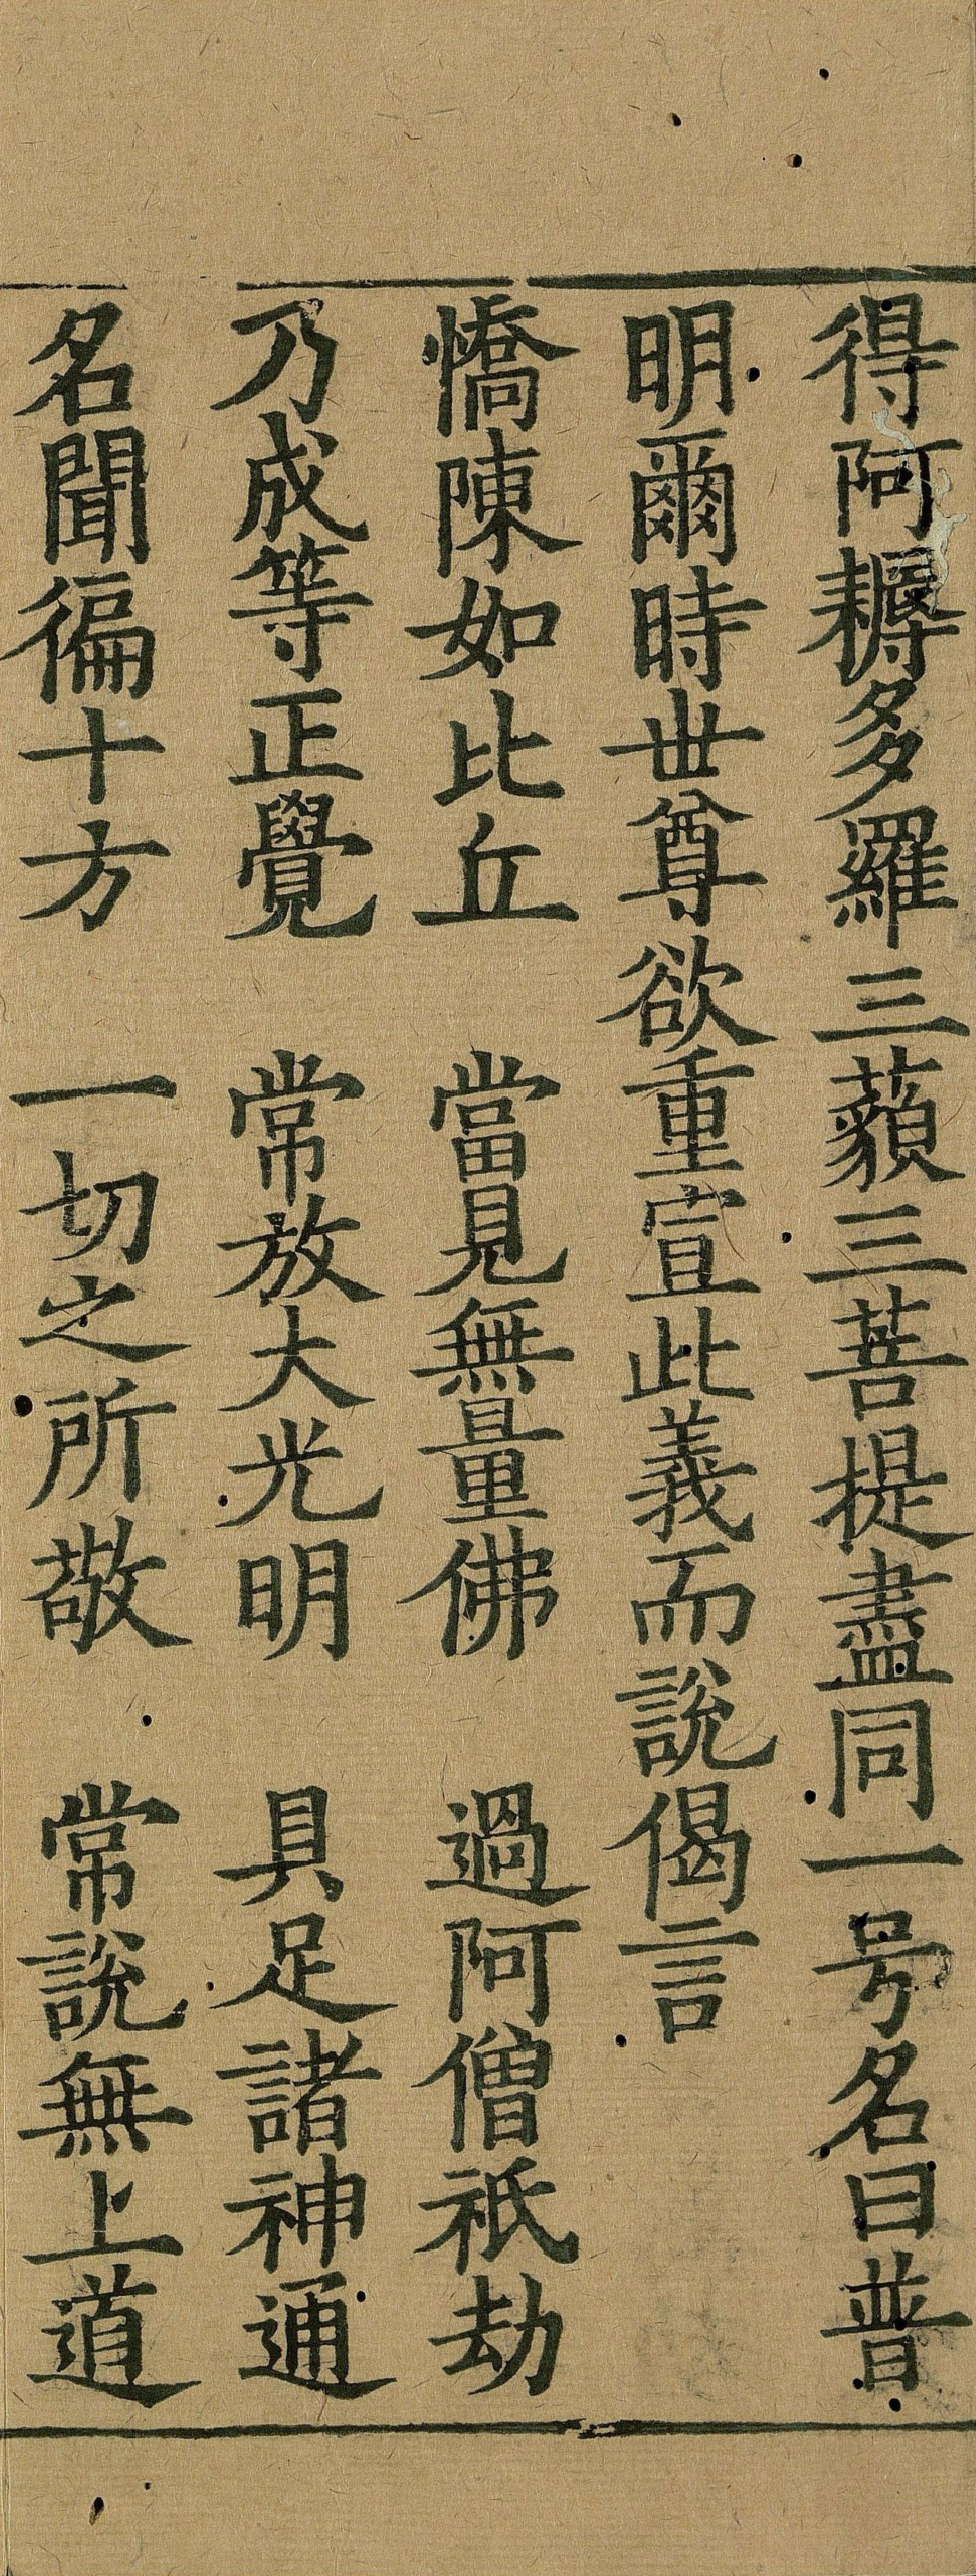 得阿耨多羅三藐三菩提盡同一号名曰普
明爾時世尊欲重宣此義而說偈言
憍陳如比丘　當見無量佛　過阿僧祇劫
乃成等正覺　常放大光明　具足諸神通
名聞徧十方　一切之所敬　常說無上道